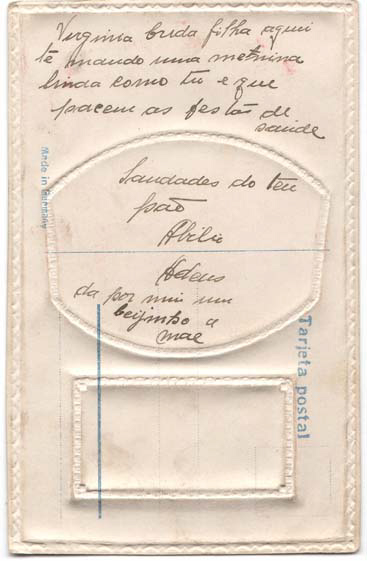 Verginia brida filha aqui
te mando uma metnina
linda como tu e que
pacem as festas de
saude
Saudades do teu
João
Abilio
Adeus
da por mim um
beijinho a
mae
Made in Germany
Tarjeta postal